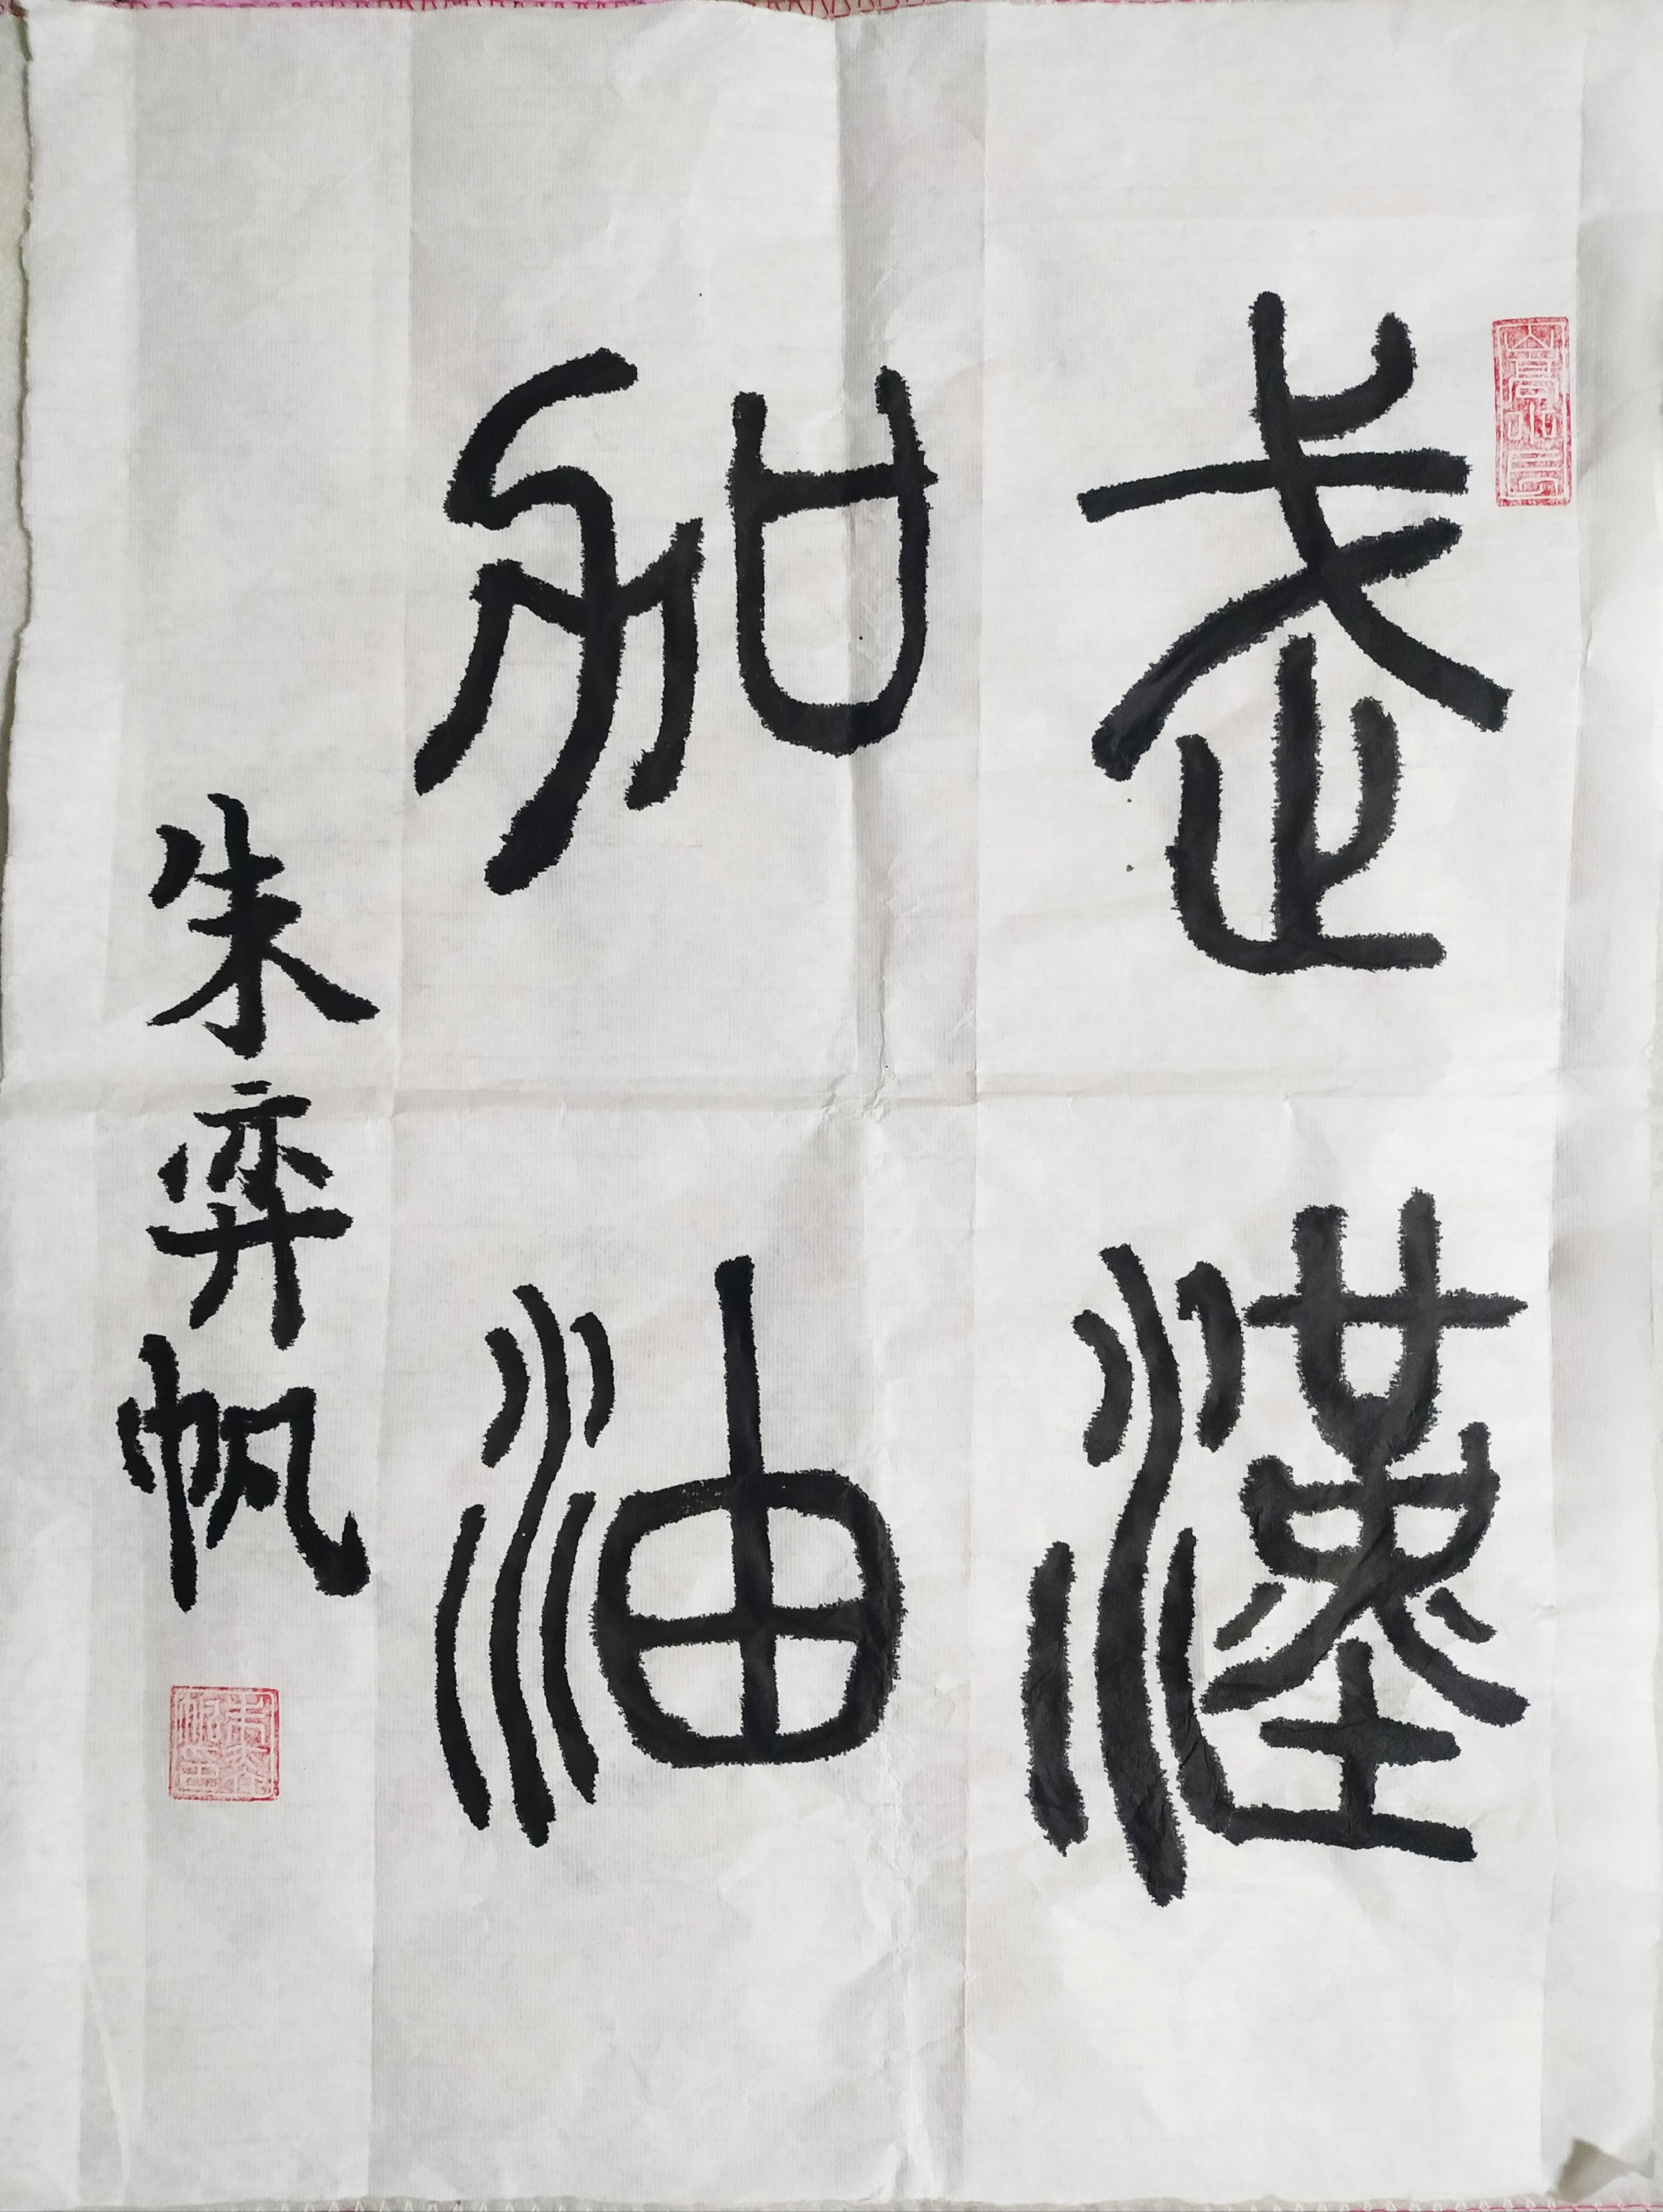 武漢
加油
朱弈帆